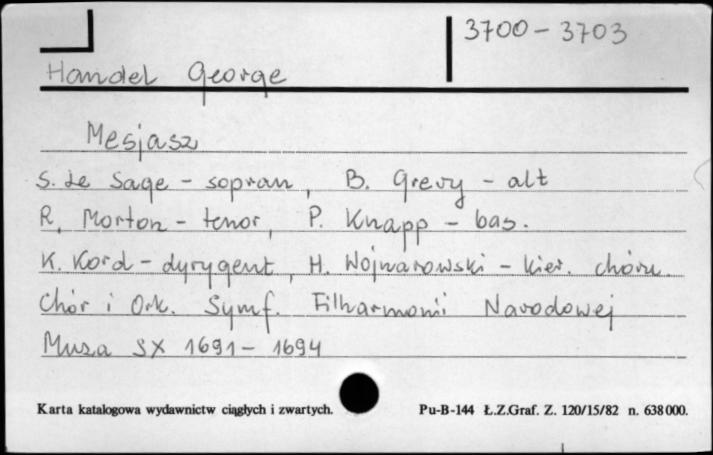 3700 - 3703
Handel George
Mesjasz
S. Le Sage - sopran, B. Grevy - alt
R. Morton - tenor, P. Knapp - bas.
K. Kord - dyrygent, H. Wojnarowski - kier. chóru
Chór i Ork. Symf. Filharmonii Narodowej
Muza SX 1691 - 1694
Karta katalogowa wydawnictw ciągłych i zwartych. Pu-B-144 Ł.Z.Graf. Z. 120/15/82 n. 638000.